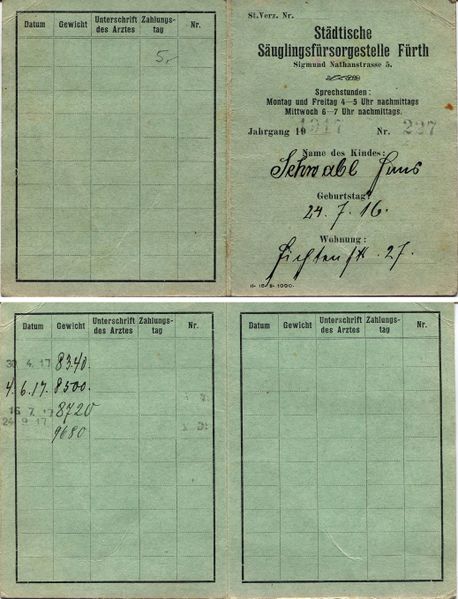 Datum Gewicht Unterschrift des Arztes Zahlungs-tag Nr.
5.-
St.Verz. Nr.
Städtische
Säuglingsfürsorgestelle Fürth
Sigmund Nathanstrasse 5.
Sprechstunden:
Montag und Freitag 4—5 Uhr nachmittags
Mittwoch 6—7 Uhr nachmittags.
Jahrgang 191917 Nr. 227
Name des Kindes:
Schwabl Hans
Geburtstag:
24. 7. 16.
Wohnung:
Fichtenstr. 27.
Datum Gewicht Unterschrift des Arztes Zahlungs-tag Nr.
30 4. 17 8340.
4. 6. 17. 8500.
16 7 17 8720
24 9 17 9680
Datum Gewicht Unterschrift des Arztes Zahlungs-tag Nr.